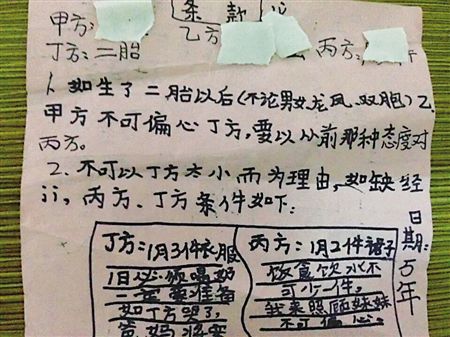 条款
甲方: 乙方 丙方:
丁方:二胎
1、如生了二胎以后(不论男女龙凤双胞)乙、
甲方不可偏心丁方,要以从前那种态度对
丙方。
2、不可以丁方太小而为理由,如缺经
济,丙方、丁方条件如下:
丁方:1月3件衣服
1日必须喝奶
一定要准备
如丁方哭了,
爸妈将要
丙方:1月2件裙子
饭食饮水不
可少一件。
我来照顾妹妹
不可偏心。
日期:5年